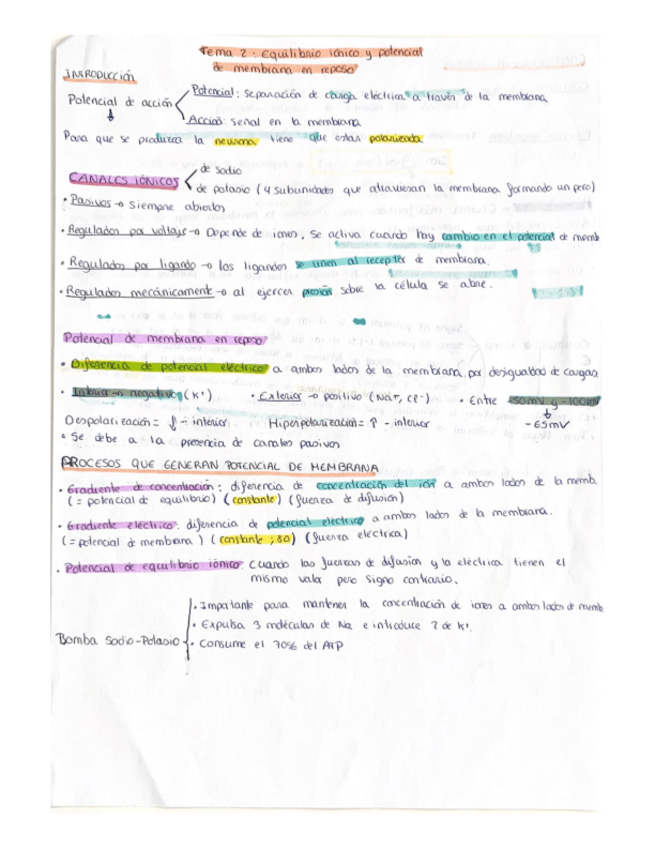 Tema 2: Equilibrio iónico y potencial
de membrana en reposo
INTRODUCCIÓN
Potencial de acción
Potencial: separación de carga eléctrica a través de la membrana
Acción: señal en la membrana
Para que se produzca la neurona tiene que estar polarizada
CANALES IÓNICOS
de sodio
de potasio (4 subunidades que atraviesan la membrana formando un poro)
• Pasivos → Siempre abiertos
• Regulados por voltaje → Depende de iones, se activa cuando hay cambio en el potencial de memb
• Regulados por ligando → los ligandos se unen al receptor de membrana.
• Regulados mecánicamente → al ejercer presión sobre la célula se abre.
Potencial de membrana en reposo
• Diferencia de potencial eléctrico a ambos lados de la membrana, por desigualdad de cargas
• Interior → negativo (K⁺) • Exterior → positivo (Na⁺, Cl⁻) • Entre -50mV y -100mV
Despolarización = ↓ - interior Hiperpolarización = ↑ - interior -65mV
• Se debe a la presencia de canales pasivos
PROCESOS QUE GENERAN POTENCIAL DE MEMBRANA
• Gradiente de concentración: diferencia de concentración del ión a ambos lados de la memb.
(= potencial de equilibrio) (constante) (fuerza de difusión)
• Gradiente eléctrico: diferencia de potencial eléctrico a ambos lados de la membrana.
(= potencial de membrana) (constante ; 80) (fuerza eléctrica)
• Potencial de equilibrio iónico: Cuando las fuerzas de difusión y la eléctrica tienen el
mismo valor pero signo contrario.
Bomba Sodio-Potasio
• Importante para mantener la concentración de iones a ambos lados de memb
• Expulsa 3 moléculas de Na e introduce 2 de K⁺.
• Consume el 70% del ATP